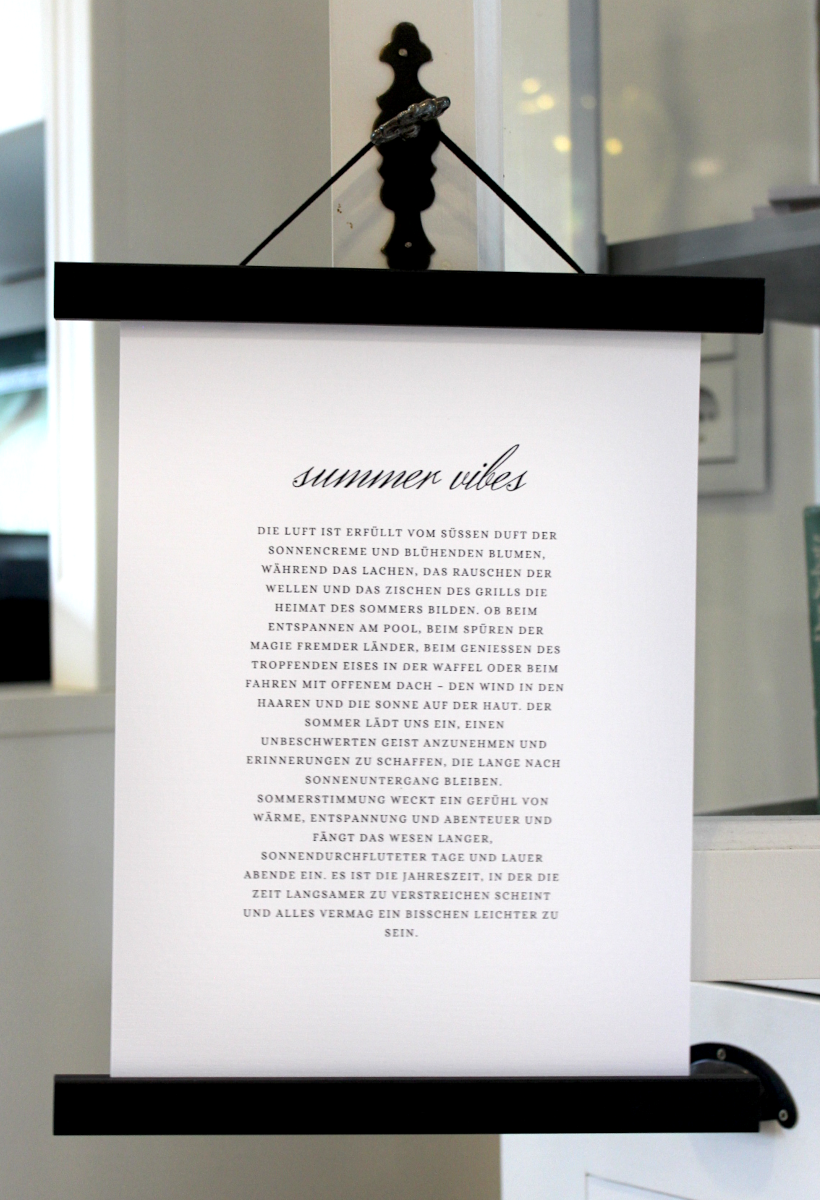 summer vibes
DIE LUFT IST ERFÜLLT VOM SÜSSEN DUFT DER
SONNENCREME UND BLÜHENDEN BLUMEN,
WÄHREND DAS LACHEN, DAS RAUSCHEN DER
WELLEN UND DAS ZISCHEN DES GRILLS DIE
HEIMAT DES SOMMERS BILDEN. OB BEIM
ENTSPANNEN AM POOL, BEIM SPÜREN DER
MAGIE FREMDER LÄNDER, BEIM GENIESSEN DES
TROPFENDEN EISES IN DER WAFFEL ODER BEIM
FAHREN MIT OFFENEM DACH – DEN WIND IN DEN
HAAREN UND DIE SONNE AUF DER HAUT. DER
SOMMER LÄDT UNS EIN, EINEN
UNBESCHWERTEN GEIST ANZUNEHMEN UND
ERINNERUNGEN ZU SCHAFFEN, DIE LANGE NACH
SONNENUNTERGANG BLEIBEN.
SOMMERSTIMMUNG WECKT EIN GEFÜHL VON
WÄRME, ENTSPANNUNG UND ABENTEUER UND
FÄNGT DAS WESEN LANGER,
SONNENDURCHFLUTETER TAGE UND LAUER
ABENDE EIN. ES IST DIE JAHRESZEIT, IN DER DIE
ZEIT LANGSAMER ZU VERSTREICHEN SCHEINT
UND ALLES VERMAG EIN BISSCHEN LEICHTER ZU
SEIN.